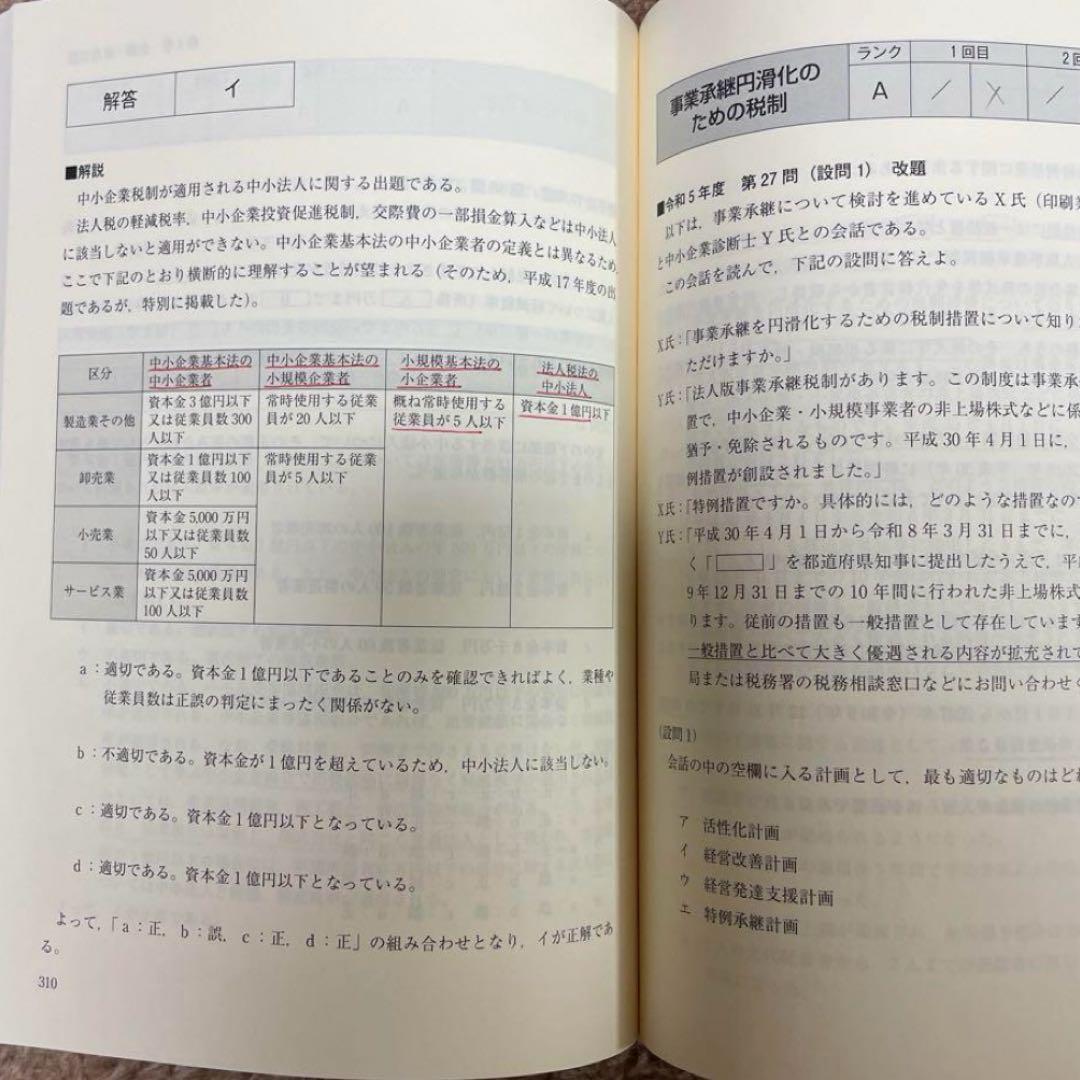 解答 イ
■解説
中小企業税制が適用される中小法人に関する出題である。
法人税の軽減税率，中小企業投資促進税制，交際費の一部損金算入などは中小法人
に該当しないと適用ができない。中小企業基本法の中小企業者の定義とは異なるため，
ここで下記のとおり横断的に理解することが望まれる（そのため，平成17年度の出
題であるが，特別に掲載した）。
区分
中小企業基本法の
中小企業者
中小企業基本法の
小規模企業者
小規模基本法の
小企業者
法人税法の
中小法人
製造業その他
資本金3億円以下
又は従業員数300
人以下
常時使用する従業
員が20人以下
概ね常時使用する
従業員が5人以下
資本金1億円以下
卸売業
資本金1億円以下
又は従業員数100
人以下
常時使用する従業
員が5人以下
小売業
資本金5,000万円
以下又は従業員数
50人以下
サービス業
資本金5,000万円
以下又は従業員数
100人以下
a：適切である。資本金1億円以下であることのみを確認できればよく，業種や
従業員数は正誤の判定にまったく関係がない。
b：不適切である。資本金が1億円を超えているため，中小法人に該当しない。
c：適切である。資本金1億円以下となっている。
d：適切である。資本金1億円以下となっている。
よって，「a：正，b：誤，c：正，d：正」の組み合わせとなり，イが正解であ
る。
310
事業承継円滑化の
ための税制
ランク 1回目 2回
A
■令和5年度 第27問（設問1） 改題
以下は，事業承継について検討を進めているX氏（印刷
と中小企業診断士Y氏との会話である。
この会話を読んで，下記の設問に答えよ。
X氏：「事業承継を円滑化するための税制措置について知り
ただけますか。」
Y氏：「法人版事業承継税制があります。この制度は事業承
置で，中小企業・小規模事業者の非上場株式などに係
猶予・免除されるものです。平成30年4月1日に，
例措置が創設されました。」
X氏：「特例措置ですか。具体的には，どのような措置なの
Y氏：「平成30年4月1日から令和8年3月31日までに，
く「 」を都道府県知事に提出したうえで，平
9年12月31日までの10年間に行われた非上場株式
ります。従前の措置も一般措置として存在しています
一般措置と比べて大きく優遇される内容が拡充されて
局または税務署の税務相談窓口などにお問い合わせく
（設問1）
会話の中の空欄に入る計画として，最も適切なものはどれ
ア 活性化計画
イ 経営改善計画
ウ 経営発達支援計画
エ 特例承継計画